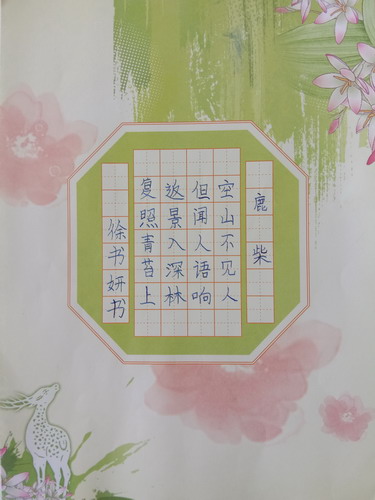 鹿柴
空山不见人
但闻人语响
返景入深林
复照青苔上
徐书妍书